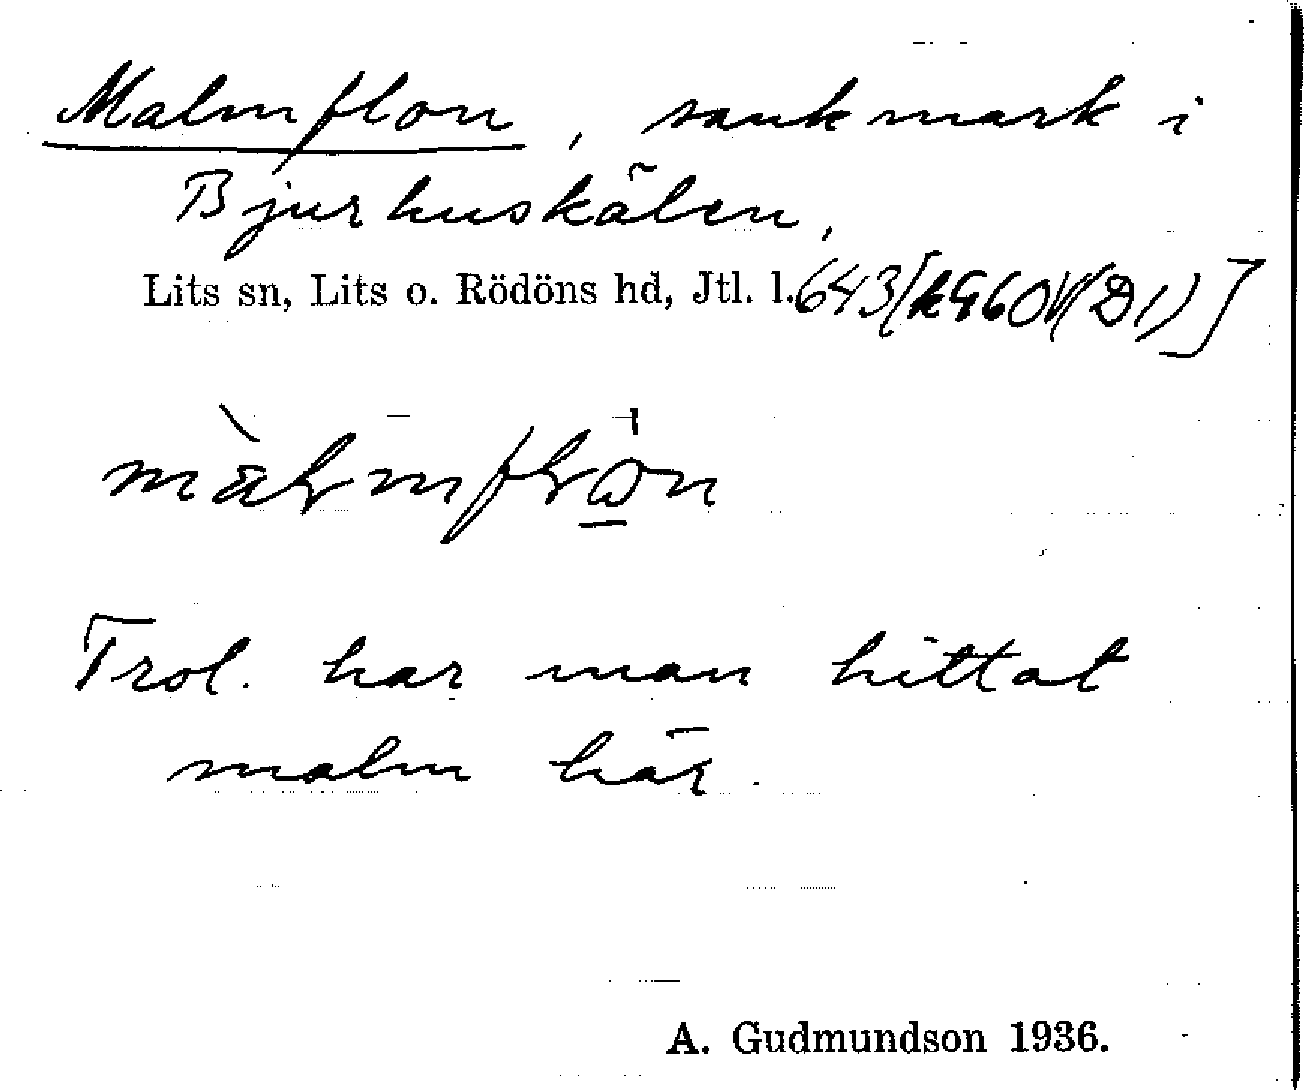 Malmflon, sankmark i
Bjurhuskälen,
Lits sn, Lits o. Rödöns hd, Jtl. l. 643 [RG60V(D1)]
Trol. har man hittat
malm här.
A. Gudmundson 1936.